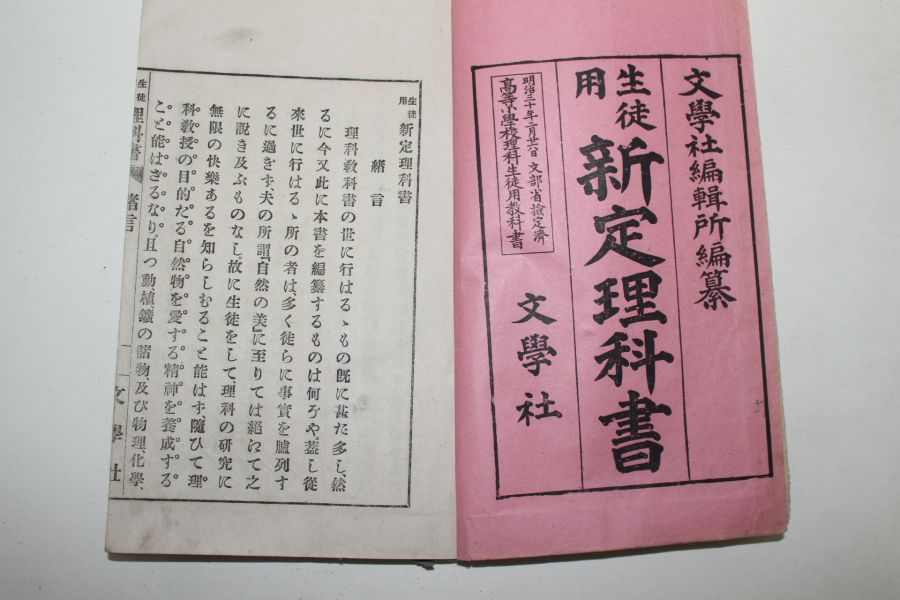 文學社編輯所編纂
生徒用 新定理科書
明治三十年一月廿六日 文部省檢定濟
高等小學校理科生徒用教科書
文學社
生徒用 新定理科書
緒言
理科敎科書の世に行はるゝもの旣に甚だ多し、然
るに今又此に本書を編纂するものは何ぞや、蓋し從
來世に行はるゝ所の者は、多く徒らに事實を臚列す
るに過ぎず、夫の所謂『自然の美』に至りては絕ゑて之
に說き及ぶものなし。故に生徒をして、理科の硏究に
無限の快樂あるを知らしむること能はず、隨ひて理
科敎授の目的たる自然物を愛する精神を養成する
こと能はざるなり、且つ動植鑛の諸物及び物理、化學、
生徒用 理科書 緒言
文學社